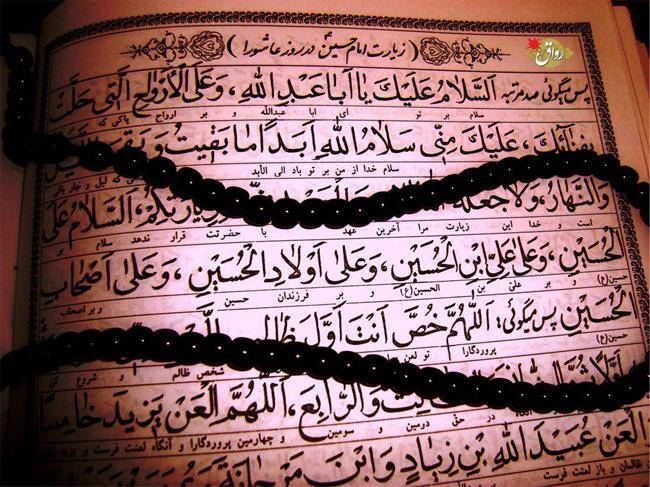 رواق
( زیارت امام حسین در روز عاشورا )
پس میگوئی صد مرتبه اَلسَّلامُ عَلَیْكَ یا اَبا عَبْدِ اللهِ ، وَعَلَی الْأَرْواحِ الَّتی حَلَّتْ
سلام بر تو ای ابا عبدالله و بر ارواح پاکی که
بِفِنائِكَ ، عَلَیْكَ مِنّی سَلامُ اللهِ اَبَداً ما بَقیتُ وَ بَقِیَ اللَّیْلُ
سلام خدا از من بر تو باد الی الأبد که لیل و نهار باقی
وَالنَّهارُ ، وَلا جَعَلَهُ زِیارَتِكُمْ ، اَلسَّلامُ عَلَی
است و خدا این زیارت مرا آخرین عهد با حضرتت قرار ندهد سلام بر
الْحُسَیْنِ ، وَعَلی عَلِیِّ ابْنِ الْحُسَیْنِ ، وَعَلی اَوْلادِ الْحُسَیْنِ ، وَعَلی اَصْحابِ
حسین(ع) و بر علی بن الحسین(ع) و بر فرزندان حسین و بر اصحاب
الْحُسَیْنِ پس میگوئی : اَللّهُمَّ خُصَّ اَنْتَ اَوَّلَ ظالِمٍ
حسین(ع) پروردگارا تو لعن شخص ظالم و شروع کن
وَالرّابِعَ ، اَللّهُمَّ الْعَنْ یَزیدَ خامِساً
در حق دومین و سومین و چهارمین پروردگارا و آنگاه لعنت فرست بر یزید
الْعَنْ عُبَیْدَ اللهِ بْنَ زِیادٍ وَ ابْنَ مَرْجانَةَ